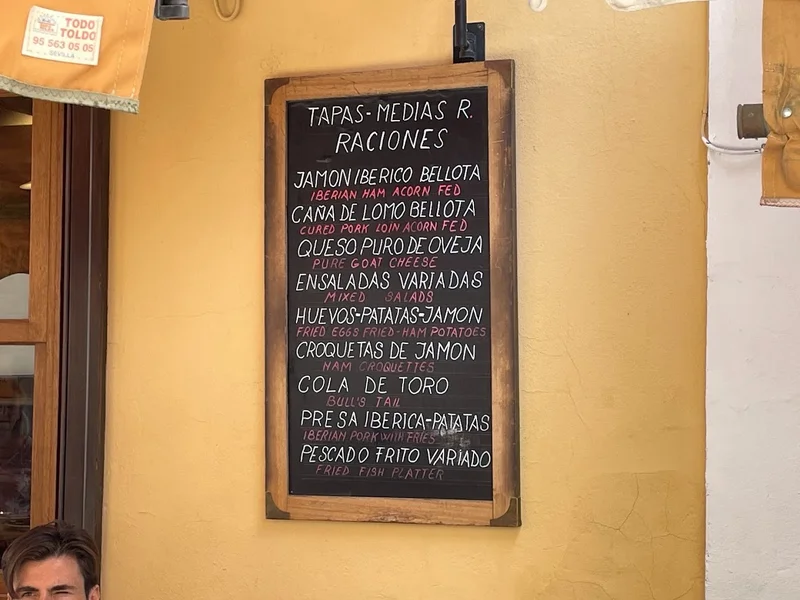 TODO
TOLDO
95 563 05 05
SEVILLA
TAPAS-MEDIAS R.
RACIONES
JAMON IBERICO BELLOTA
IBERIAN HAM ACORN FED
CAÑA DE LOMO BELLOTA
CURED PORK LOIN ACORN FED
QUESO PURO DE OVEJA
PURE GOAT CHEESE
ENSALADAS VARIADAS
MIXED SALADS
HUEVOS-PATATAS-JAMON
FRIED EGGS FRIED-HAM POTATOES
CROQUETAS DE JAMON
HAM CROQUETTES
COLA DE TORO
BULL'S TAIL
PRESA IBERICA-PATATAS
IBERIAN PORK WITH FRIES
PESCADO FRITO VARIADO
FRIED FISH PLATTER